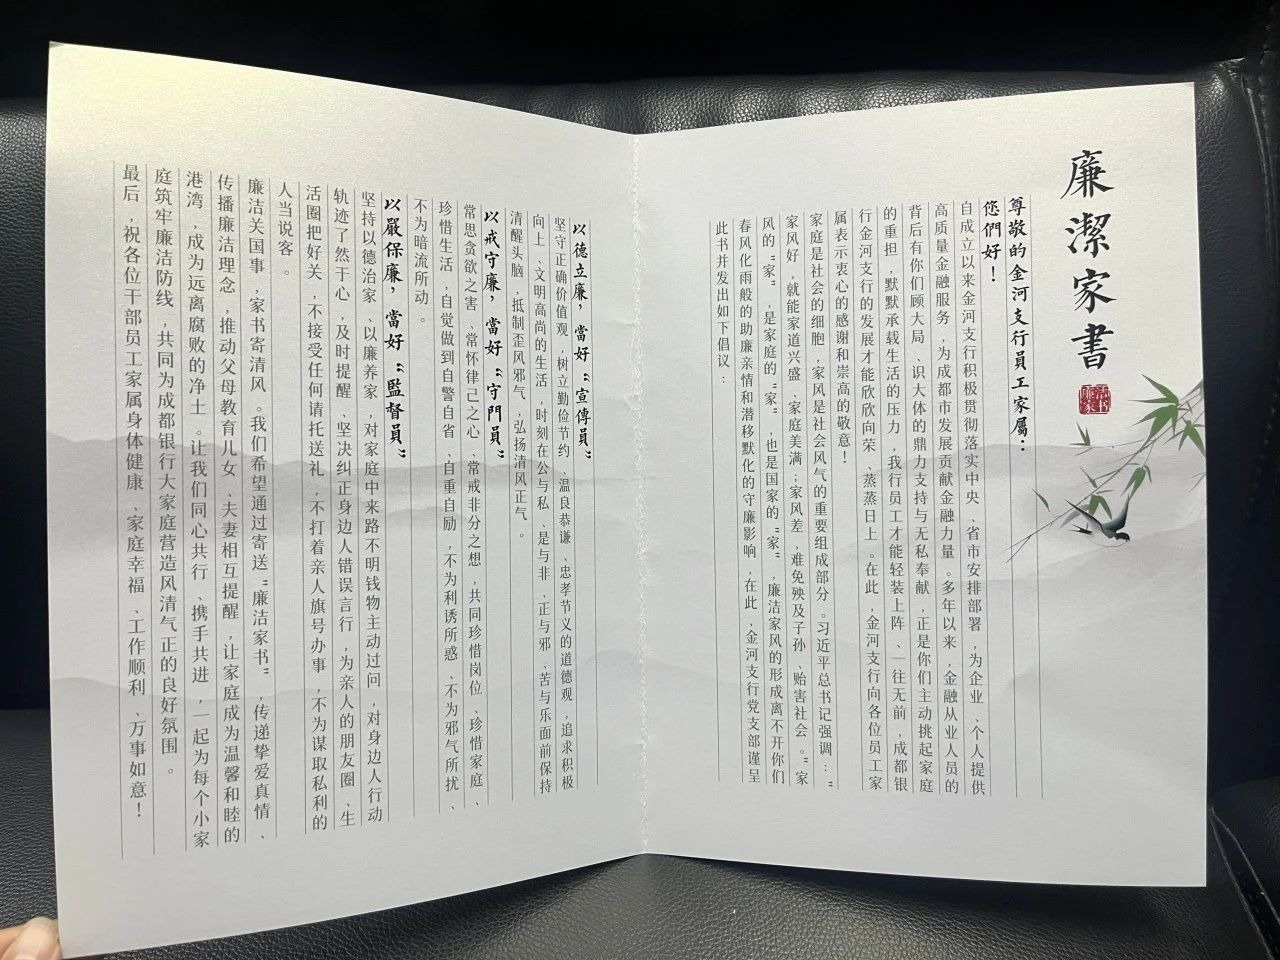 廉潔家書
廉洁家书
尊敬的金河支行員工家屬：
您們好！
自成立以来金河支行积极贯彻落实中央、省市安排部署，为企业、个人提供
高质量金融服务，为成都市发展贡献金融力量。多年以来，金融从业人员的
背后有你们顾大局、识大体的鼎力支持与无私奉献，正是你们主动挑起家庭
的重担，默默承载生活的压力，我行员工才能轻装上阵、一往无前，成都银
行金河支行的发展才能欣欣向荣、蒸蒸日上。在此，金河支行向各位员工家
属表示衷心的感谢和崇高的敬意！
家庭是社会的细胞，家风是社会风气的重要组成部分。习近平总书记强调：“
家风好，就能家道兴盛、家庭美满；家风差，难免殃及子孙、贻害社会。”家
风的“家”，是家庭的“家”，也是国家的“家”，廉洁家风的形成离不开你们
春风化雨般的助廉亲情和潜移默化的守廉影响，在此，金河支行党支部谨呈
此书并发出如下倡议：
以德立廉，當好“宣傳員”
坚守正确价值观，树立勤俭节约、温良恭谦、忠孝节义的道德观，追求积极
向上、文明高尚的生活，时刻在公与私、是与非、正与邪、苦与乐面前保持
清醒头脑，抵制歪风邪气，弘扬清风正气。
以戒守廉，當好“守門員”
常思贪欲之害、常怀律己之心、常戒非分之想，共同珍惜岗位、珍惜家庭、
珍惜生活，自觉做到自警自省、自重自励，不为利诱所惑、不为邪气所扰、
不为暗流所动。
以嚴保廉，當好“監督員”
坚持以德治家、以廉养家，对家庭中来路不明钱物主动过问，对身边人行动
轨迹了然于心，及时提醒、坚决纠正身边人错误言行，为亲人的朋友圈、生
活圈把好关，不接受任何请托送礼，不打着亲人旗号办事，不为谋取私利的
人当说客。
廉洁关国事，家书寄清风。我们希望通过寄送“廉洁家书”，传递挚爱真情、
传播廉洁理念，推动父母教育儿女、夫妻相互提醒，让家庭成为温馨和睦的
港湾，成为远离腐败的净土。让我们同心共行、携手共进，一起为每个小家
庭筑牢廉洁防线，共同为成都银行大家庭营造风清气正的良好氛围。
最后，祝各位干部员工家属身体健康、家庭幸福、工作顺利、万事如意！